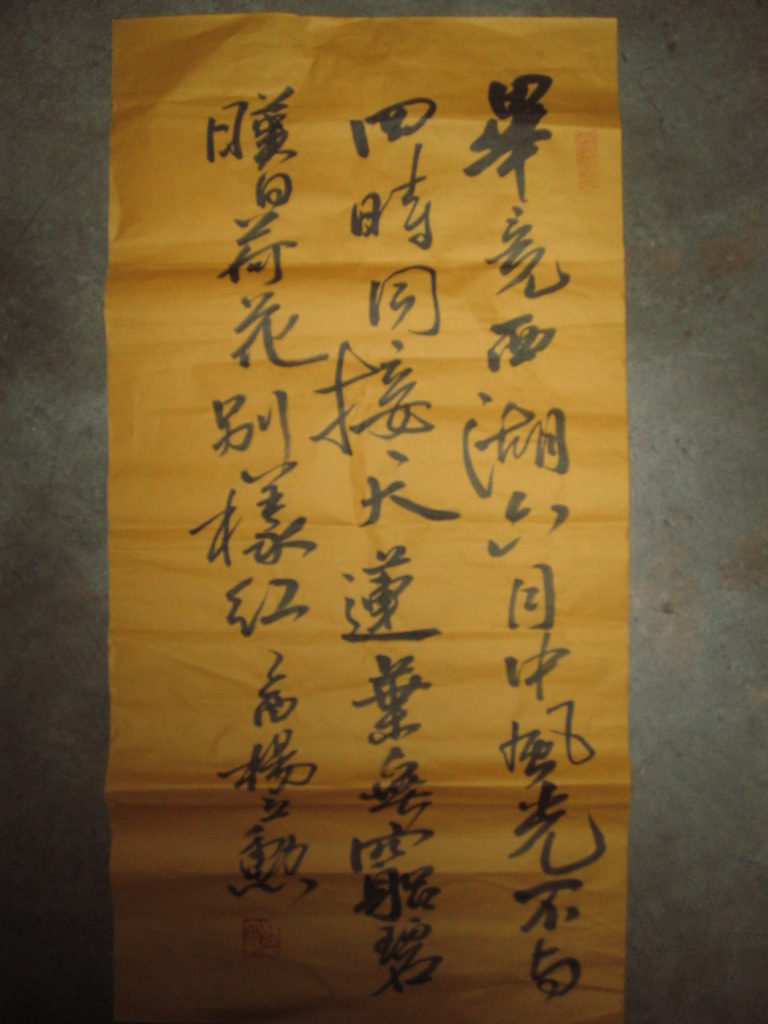 畢竟西湖六月中風光不与
四時同接天蓮葉無窮碧
映日荷花別樣紅 楊立勳